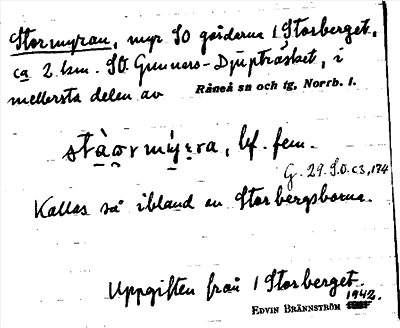 Stormyran, myr SO gårdarna i Storberget,
ca 2 km. SO. Gunnars-Djupträsket, i
mellersta delen av Råneå sn och tg, Norrb. l.
stà̱o̱r mý̱r̤ra, bf. fem.
G. 29. S.O. c3, 174
Kallas så ibland av Storbergsborna.
Uppgiften från i Storberget.
1942.
EDVIN BRÄNNSTRÖM